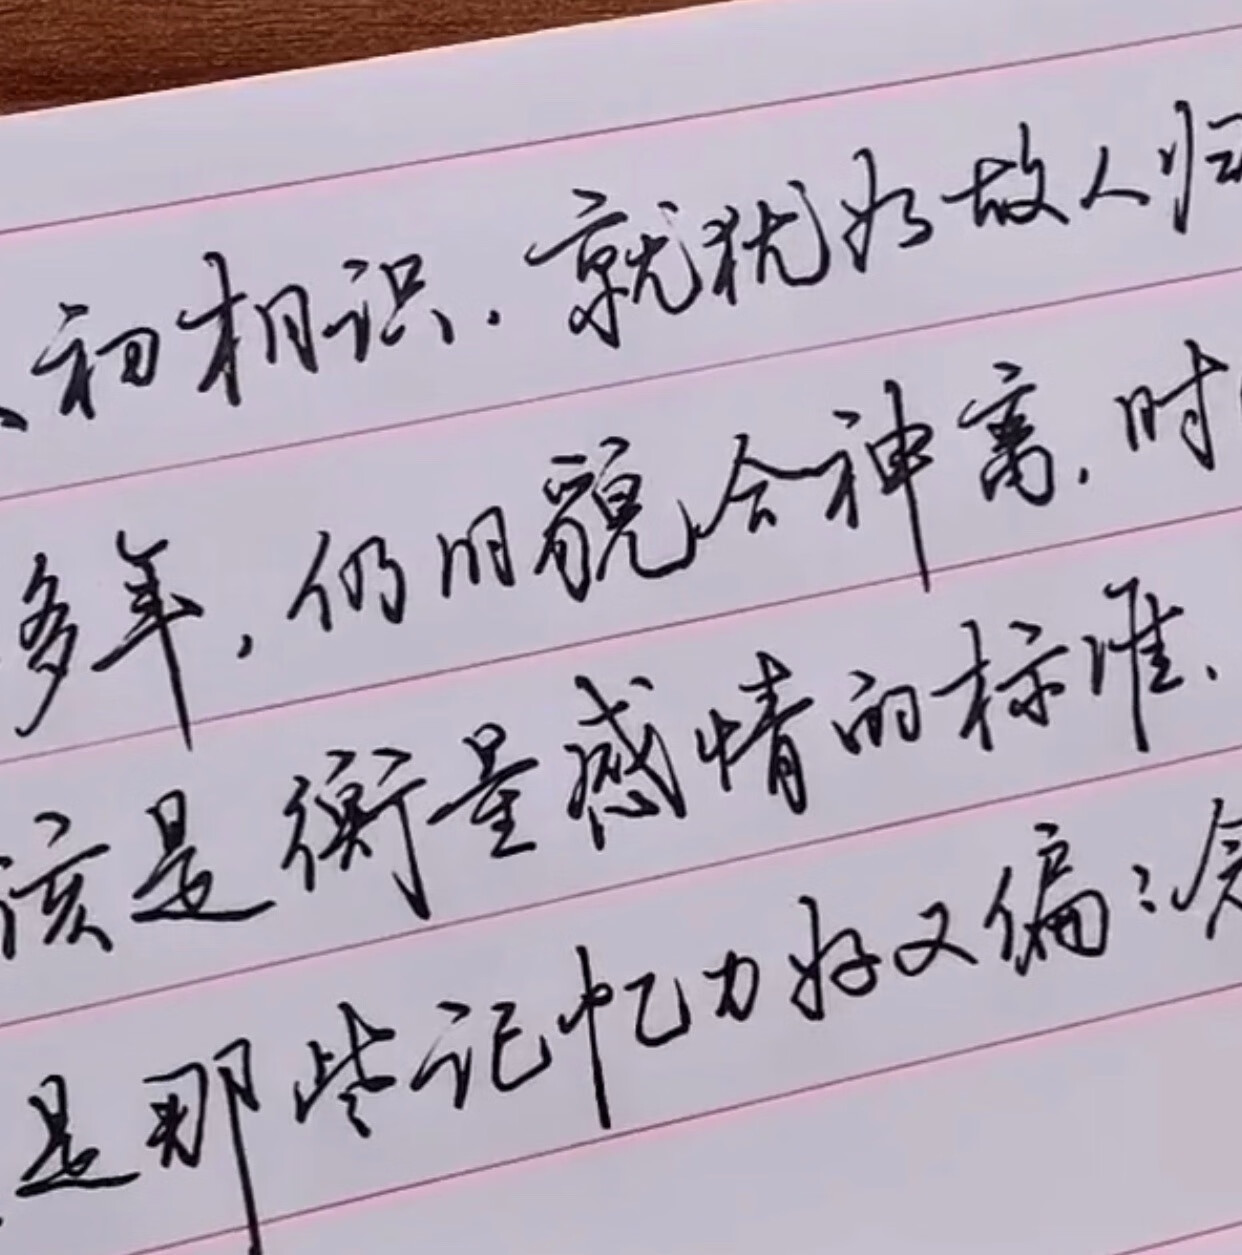 初相识.就犹如故人归
多年,仍旧貌合神离.时
该是衡量感情的标准.
是那些记忆力好又偏: